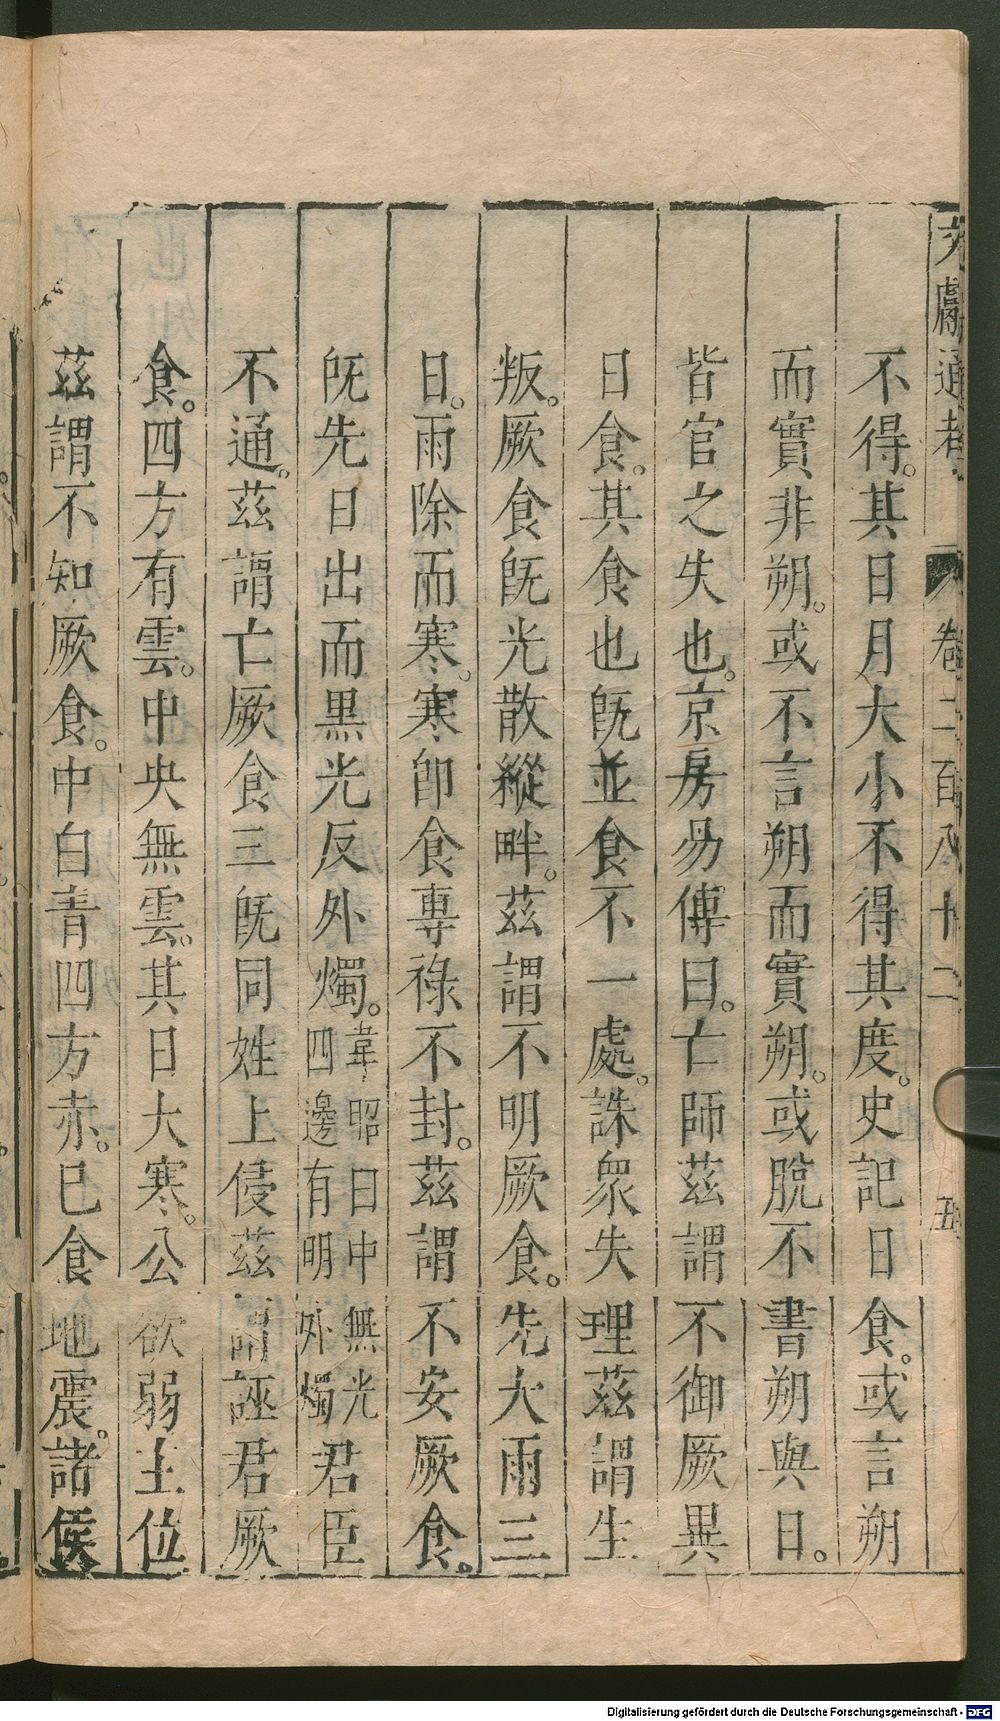 文獻通考 卷二百八十二 五
不得。其日月大小不得其度。史記日食。或言朔
而實非朔。或不言朔而實朔。或脫不書朔與日。
皆官之失也。京房易傳曰。亡師茲謂不御厥異
日食。其食也既並食不一處。誅衆失理茲謂生
叛。厥食既光散縱畔。茲謂不明厥食。先大雨三
日。雨除而寒。寒卽食專祿不封。茲謂不安厥食。
旣先日出而黑光反外燭。韋昭曰中無光四邊有明外燭君臣
不通。茲謂亡厥食三旣同姓上侵茲謂誣君厥
食。四方有雲。中央無雲。其日大寒。公欲弱主位
茲謂不知厥食。中白青四方赤。已食地震。諸侯
Digitalisierung gefördert durch die Deutsche Forschungsgemeinschaft - DFG